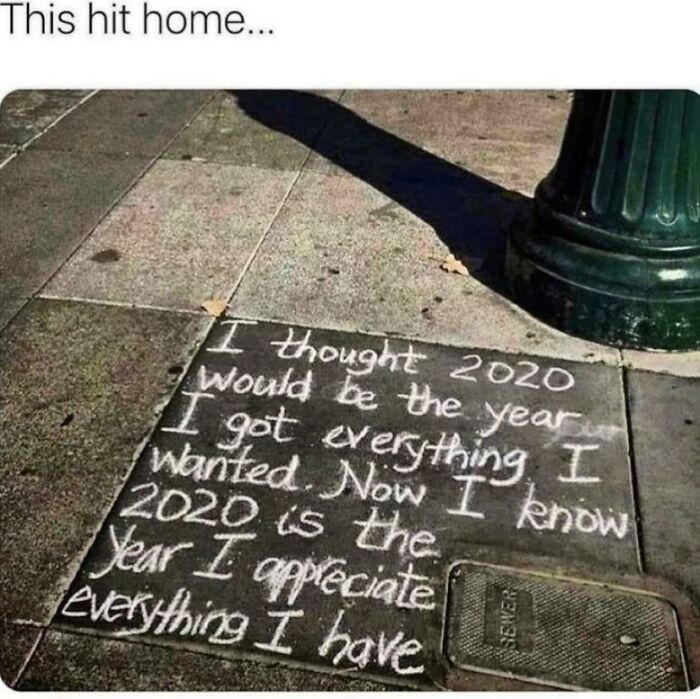 This hit home...
I thought 2020
would be the year
I got everything I
wanted. Now I know
2020 is the
year I appreciate
everything I have
SEWER